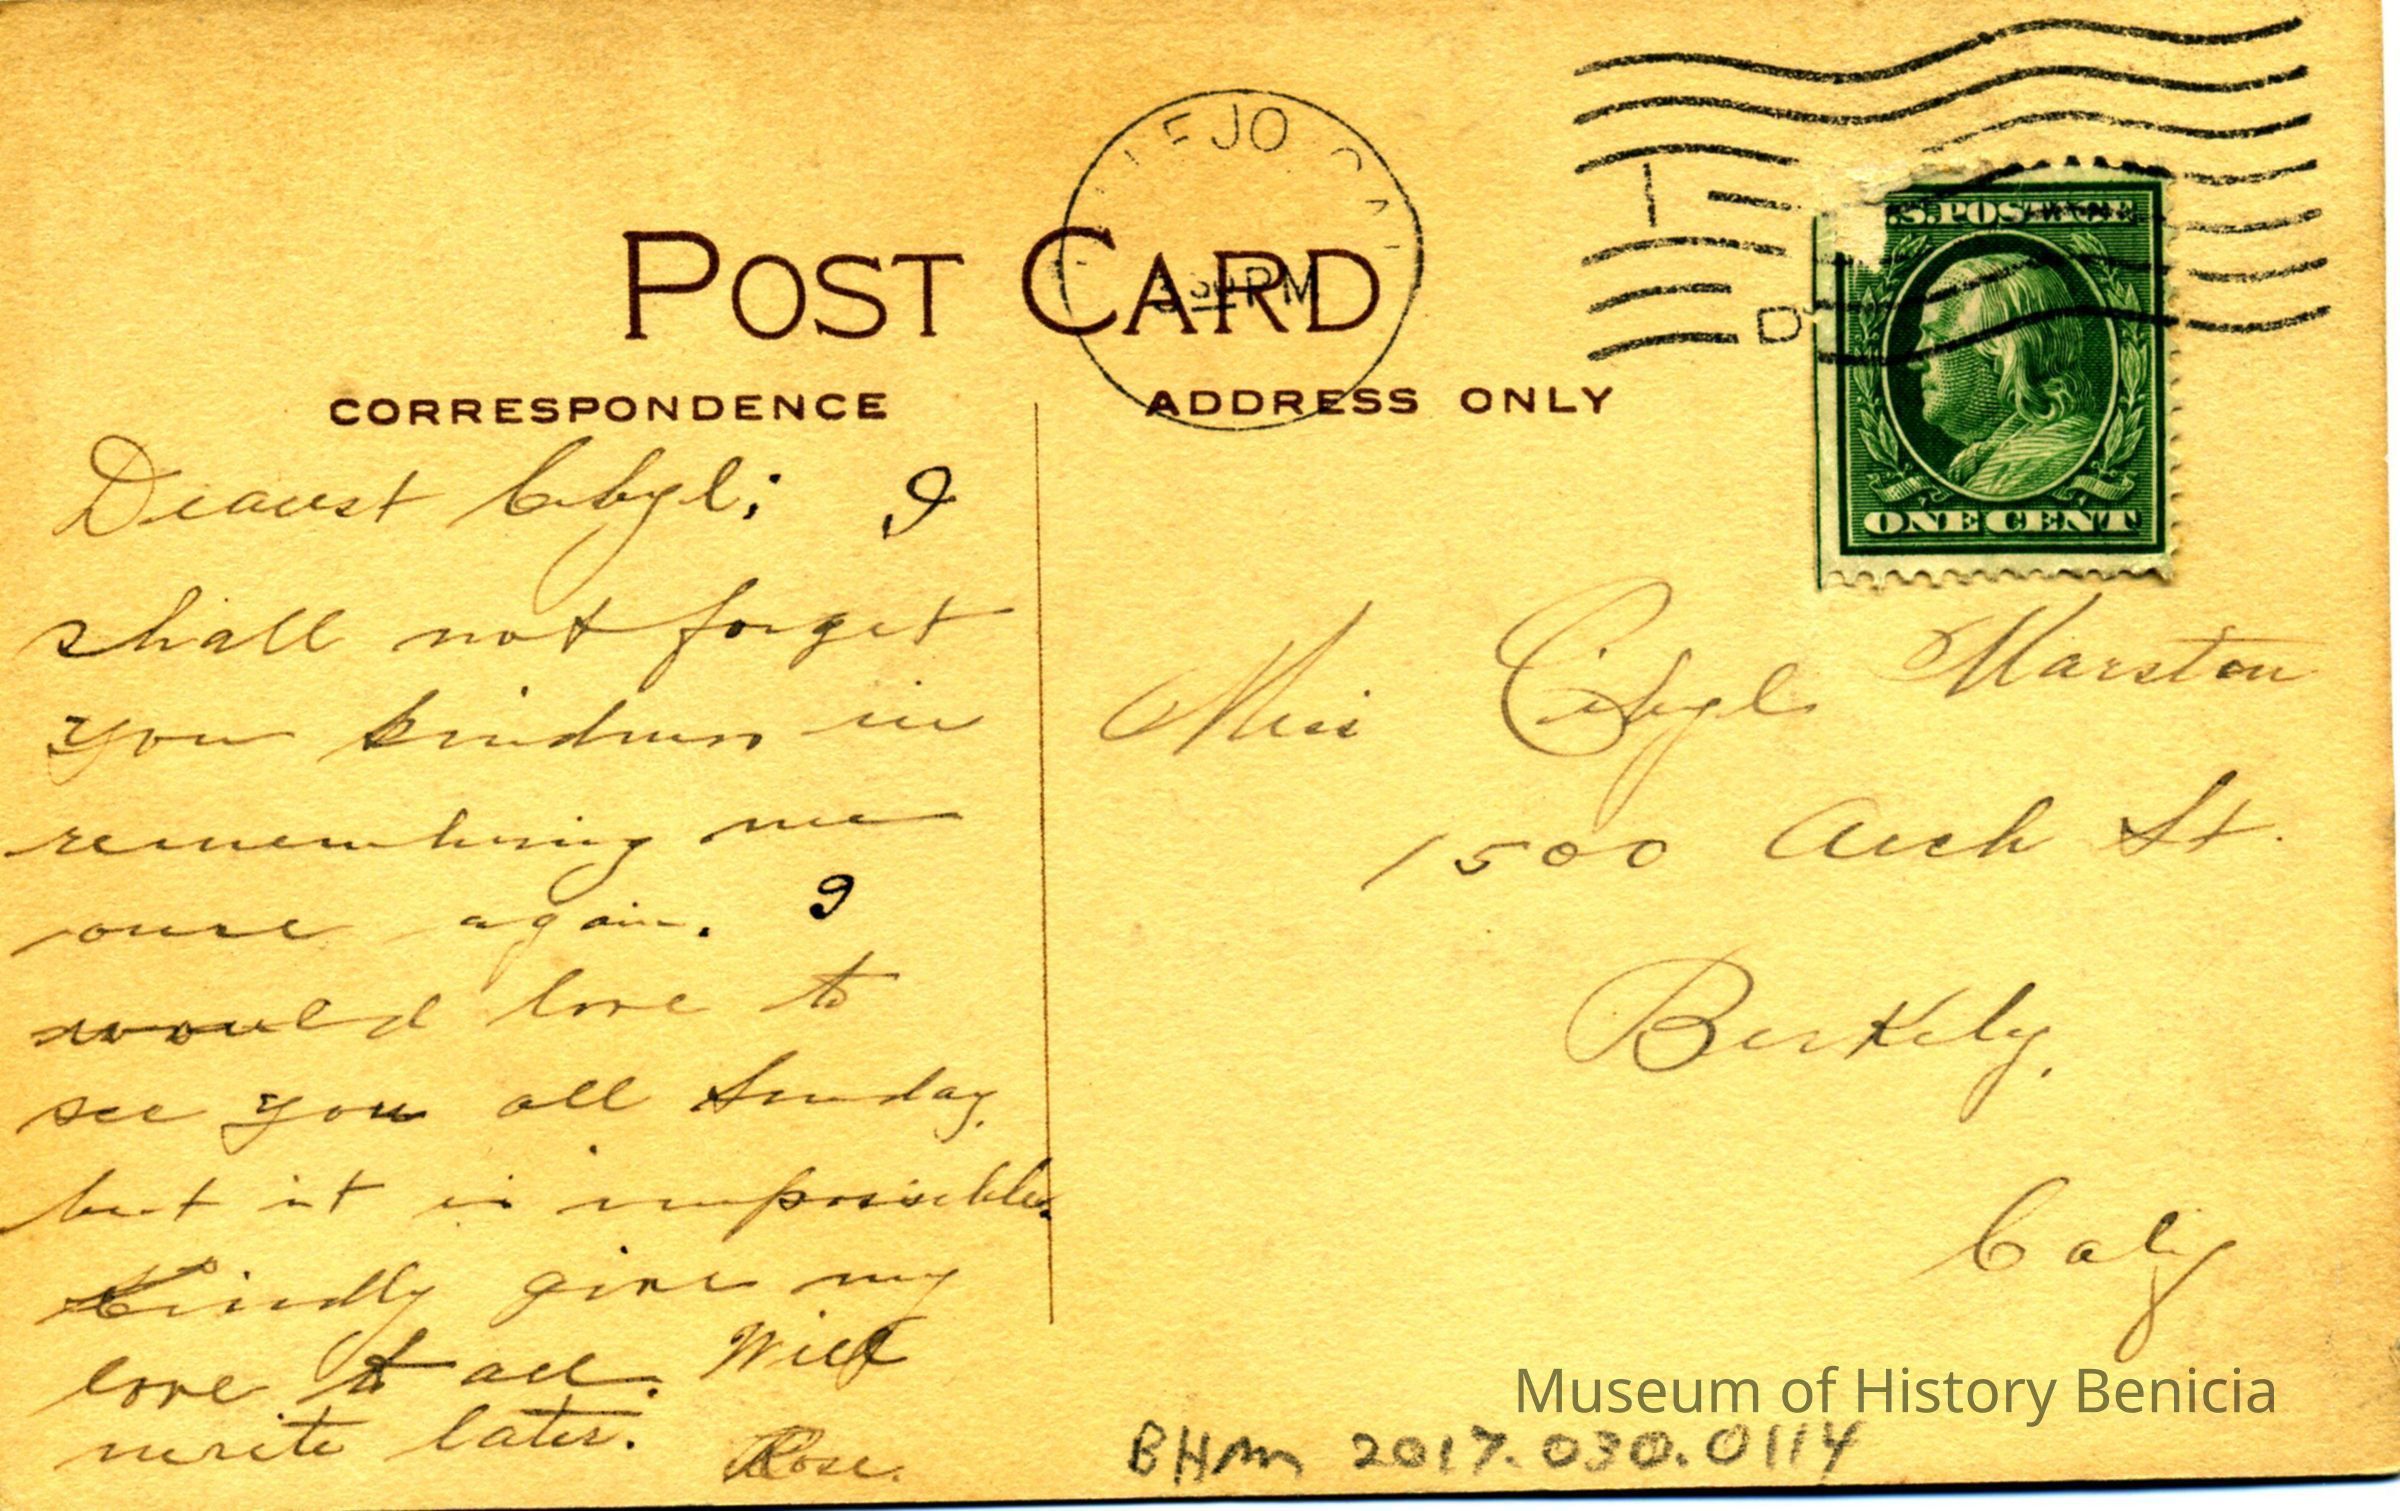 POST CARD
CORRESPONDENCE
ADDRESS ONLY
EJO
3 30 PM
D
U.S. POSTAGE
ONE CENT
Dearest Cibyl; I
shall not forget
your kindness in
remembering me
once again. I
would love to
see you all Sunday,
but it is impossible.
Kindly give my
love to all. Will
write later.
Rose.
Miss Cibyl Marston
1500 Arch St.
Berkely.
Calif
Museum of History Benicia
BHM 2017.030.0114